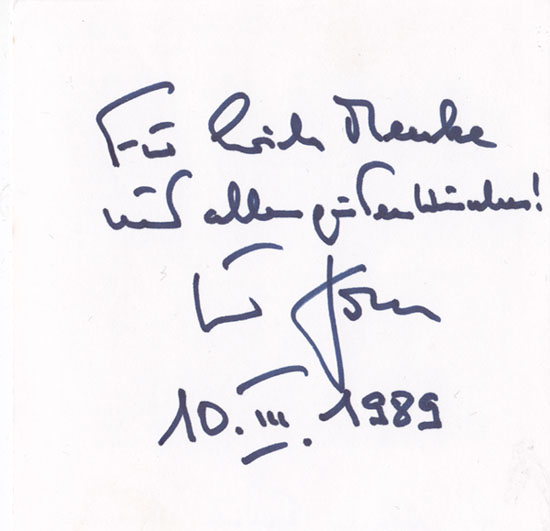 Für Erich Menke
mit allen guten Wünschen!
10. III. 1989